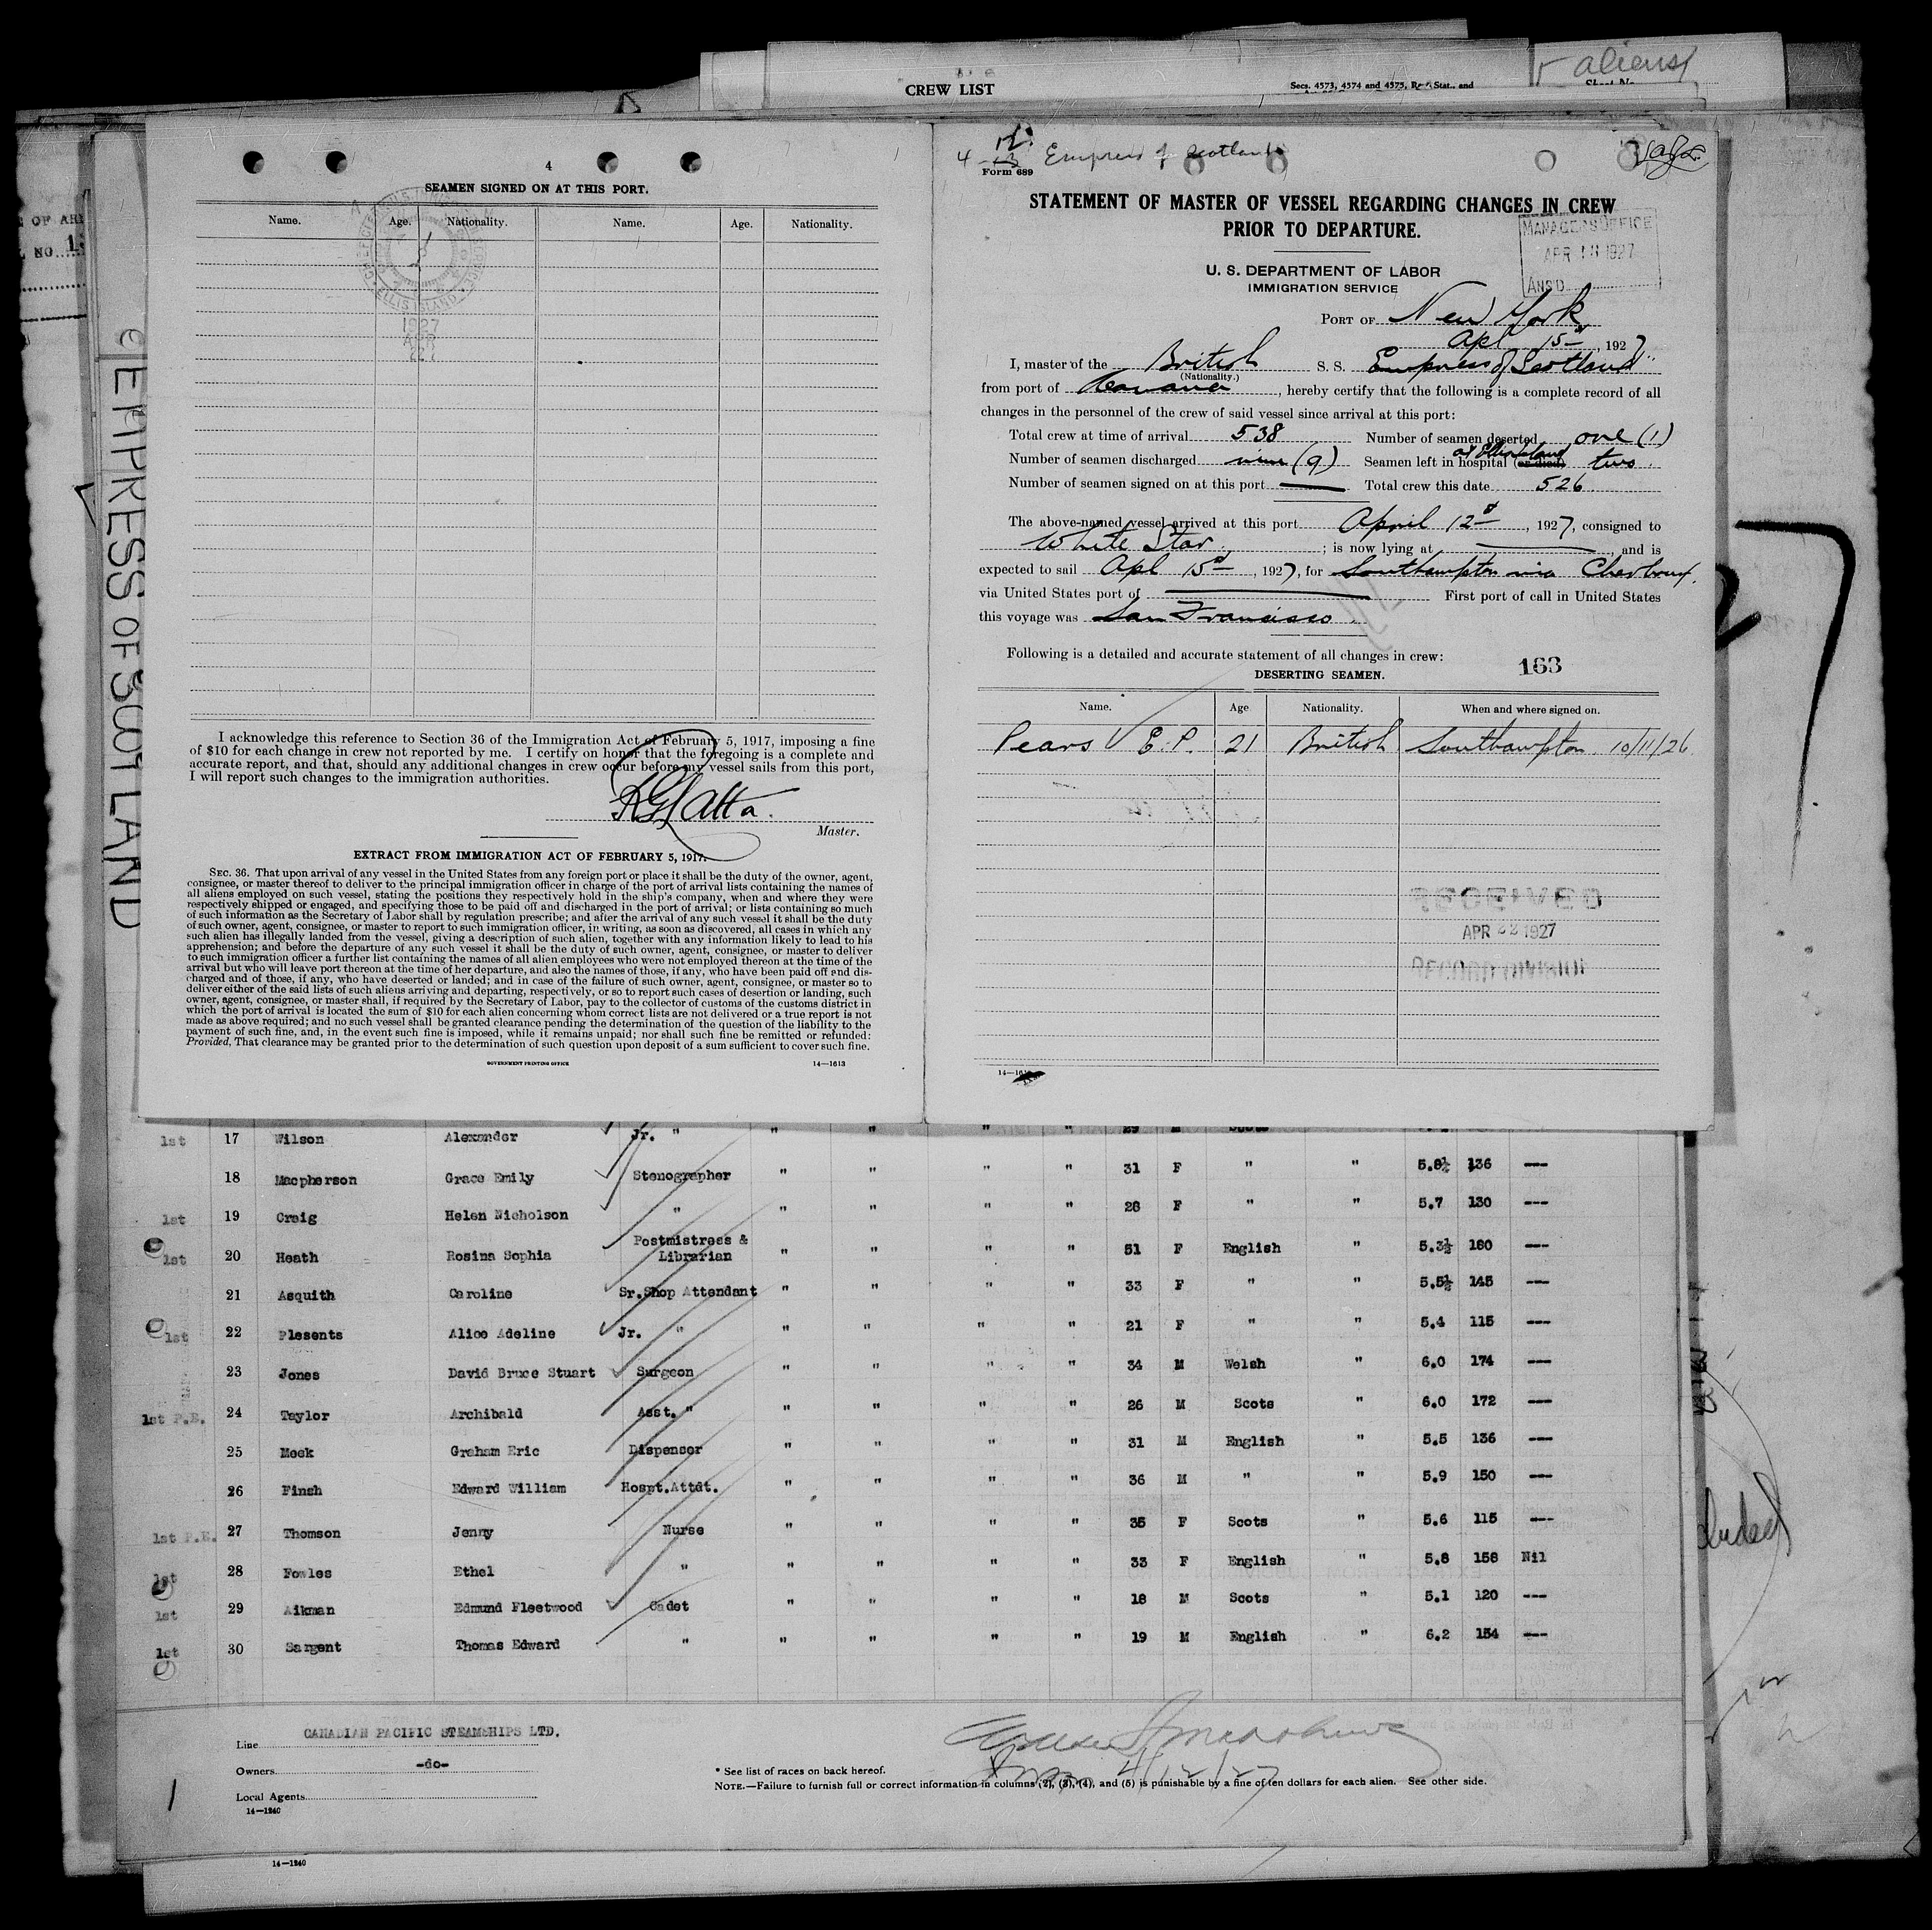 CREW LIST
Secs. 4573, 4574 and 4575, Rev. Stat., and
aliens
EMPRESS OF SCOTLAND
4
SEAMEN SIGNED ON AT THIS PORT.
Name. Age. Nationality. Name. Age. Nationality.
ELLIS ISLAND
1927
APR
I acknowledge this reference to Section 36 of the Immigration Act of February 5, 1917, imposing a fine
of $10 for each change in crew not reported by me. I certify on honor that the foregoing is a complete and
accurate report, and that, should any additional changes in crew occur before my vessel sails from this port,
I will report such changes to the immigration authorities.
RGLatta.
Master.
EXTRACT FROM IMMIGRATION ACT OF FEBRUARY 5, 1917.
SEC. 36. That upon arrival of any vessel in the United States from any foreign port or place it shall be the duty of the owner, agent,
consignee, or master thereof to deliver to the principal immigration officer in charge of the port of arrival lists containing the names of
all aliens employed on such vessel, stating the positions they respectively hold in the ship's company, when and where they were
respectively shipped or engaged, and specifying those to be paid off and discharged in the port of arrival; or lists containing so much
of such information as the Secretary of Labor shall by regulation prescribe; and after the arrival of any such vessel it shall be the duty
of such owner, agent, consignee, or master to report to such immigration officer, in writing, as soon as discovered, all cases in which any
such alien has illegally landed from the vessel, giving a description of such alien, together with any information likely to lead to his
apprehension; and before the departure of any such vessel it shall be the duty of such owner, agent, consignee, or master to deliver
to such immigration officer a further list containing the names of all alien employees who were not employed thereon at the time of the
arrival but who will leave port thereon at the time of her departure, and also the names of those, if any, who have been paid off and dis-
charged and of those, if any, who have deserted or landed; and in case of the failure of such owner, agent, consignee, or master so to
deliver either of the said lists of such aliens arriving and departing, respectively, or so to report such cases of desertion or landing, such
owner, agent, consignee, or master shall, if required by the Secretary of Labor, pay to the collector of customs of the customs district in
which the port of arrival is located the sum of $10 for each alien concerning whom correct lists are not delivered or a true report is not
made as above required; and no such vessel shall be granted clearance pending the determination of the question of the liability to the
payment of such fine, and, in the event such fine is imposed, while it remains unpaid; nor shall such fine be remitted or refunded:
Provided, That clearance may be granted prior to the determination of such question upon deposit of a sum sufficient to cover such fine.
GOVERNMENT PRINTING OFFICE 14—1613
Empress of Scotland
Form 689
STATEMENT OF MASTER OF VESSEL REGARDING CHANGES IN CREW
PRIOR TO DEPARTURE.
MANAGERS OFFICE
APR 18 1927
ANS'D
U. S. DEPARTMENT OF LABOR
IMMIGRATION SERVICE
PORT OF New York
Apl 15th, 1927
I, master of the British S. S. Empress of Scotland
(Nationality.)
from port of Havana, hereby certify that the following is a complete record of all
changes in the personnel of the crew of said vessel since arrival at this port:
Total crew at time of arrival 538 Number of seamen deserted one (1)
Number of seamen discharged nine (9) Seamen left in hospital (or died) at Ellis Island two.
Number of seamen signed on at this port — Total crew this date 526.
The above-named vessel arrived at this port April 12th, 1927, consigned to
White Star; is now lying at —, and is
expected to sail Apl 15th, 1927, for Southampton via Cherbourg.
via United States port of — First port of call in United States
this voyage was San Francisco.
Following is a detailed and accurate statement of all changes in crew:
163
DESERTING SEAMEN.
Name. Age Nationality. When and where signed on.
Pears E.P. 21 British Southampton 10/11/26
RECEIVED
APR 22 1927
RECORD DIVISION
1st 17 Wilson Alexander Jr. " " " " " 29 M Scots
18 Macpherson Grace Emily Stenographer " " " " 31 F " " 5.8½ 136 ---
1st 19 Craig Helen Nicholson " " " " " 28 F " " 5.7 130 ---
1st 20 Heath Rosina Sophia Postmistress & Librarian " " " " 51 F English " 5.3½ 180 ---
21 Asquith Caroline Sr.Shop Attendant " " " " 33 F " " 5.5½ 145 ---
1st 22 Plesents Alice Adeline Jr. " " " " " 21 F " " 5.4 115 ---
23 Jones David Bruce Stuart Surgeon " " " " 34 M Welsh " 6.0 174 ---
1st P.E. 24 Taylor Archibald Asst. " " " " " 26 M Scots " 6.0 172 ---
25 Meek Graham Eric Dispenser " " " " 31 M English " 5.5 136 ---
26 Finch Edward William Hospt.Attdt. " " " " 36 M " " 5.9 150 ---
1st P.E. 27 Thomson Jenny Nurse " " " " 35 F Scots " 5.6 115 ---
1st 28 Fowles Ethel " " " " " 33 F English " 5.8 158 Nil
1st 29 Aikman Edmund Fleetwood Cadet " " " " 18 M Scots " 5.1 120 ---
1st 30 Sargent Thomas Edward " " " " " 19 M English " 6.2 154 ---
Line CANADIAN PACIFIC STEAMSHIPS LTD.
Owners -do-
Local Agents
14—1240
4/12/27
* See list of races on back hereof.
NOTE.—Failure to furnish full or correct information in columns (2), (3), (4), and (5) is punishable by a fine of ten dollars for each alien. See other side.
14—1240